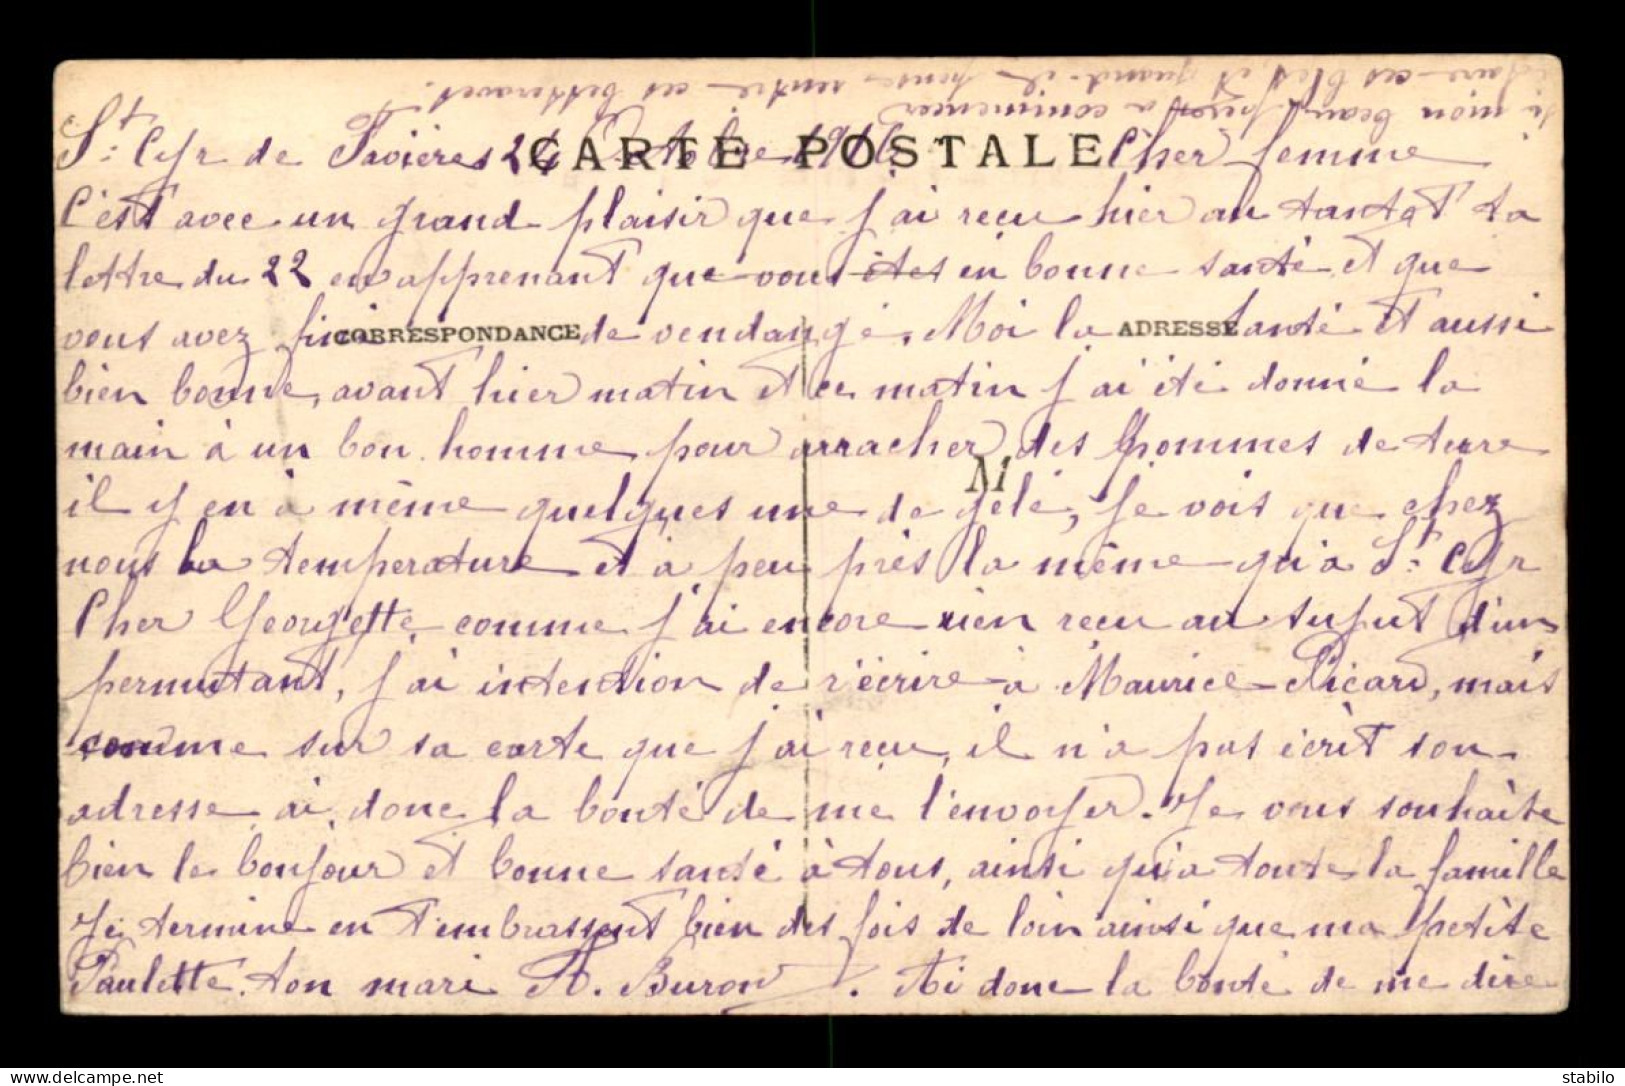 CARTE POSTALE
St. Cyr de Favières 24 Octobre Cher femme
C'est avec un grand plaisir que j'ai reçu hier au tantot ta
lettre du 22 en apprenant que vous êtes en bonne santé et que
vous avez fini de vendangé. Moi la santé et aussi
CORRESPONDANCE
ADRESSE
bien bonne, avant hier matin et ce matin j'ai été donné la
main à un bon homme pour arracher des pommes de terre
il y en à même quelques une de gelé, Je vois que chez
M
nous la température et à peu près la même qu'a St. Cyr
Cher Georgette comme j'ai encore rien reçu au sujut d'un
permutant, j'ai intention de r'écrire à Maurice Picard, mais
comme sur sa carte que j'ai reçu, il n'a pas écrit son
adresse ai donc la bonté de me l'envoyer. Je vous souhaite
bien le bonjour et bonne santé à tous, ainsi qu'a toute la famille
Je termine en t'embrassent bien des fois de loin ainsi que ma petite
Paulette. ton mari A. Buron. Ai donc la bonté de me dire
si mon beau a commencer
faire ces bles, et quand il pense rentré ces betteraves.
stabilo